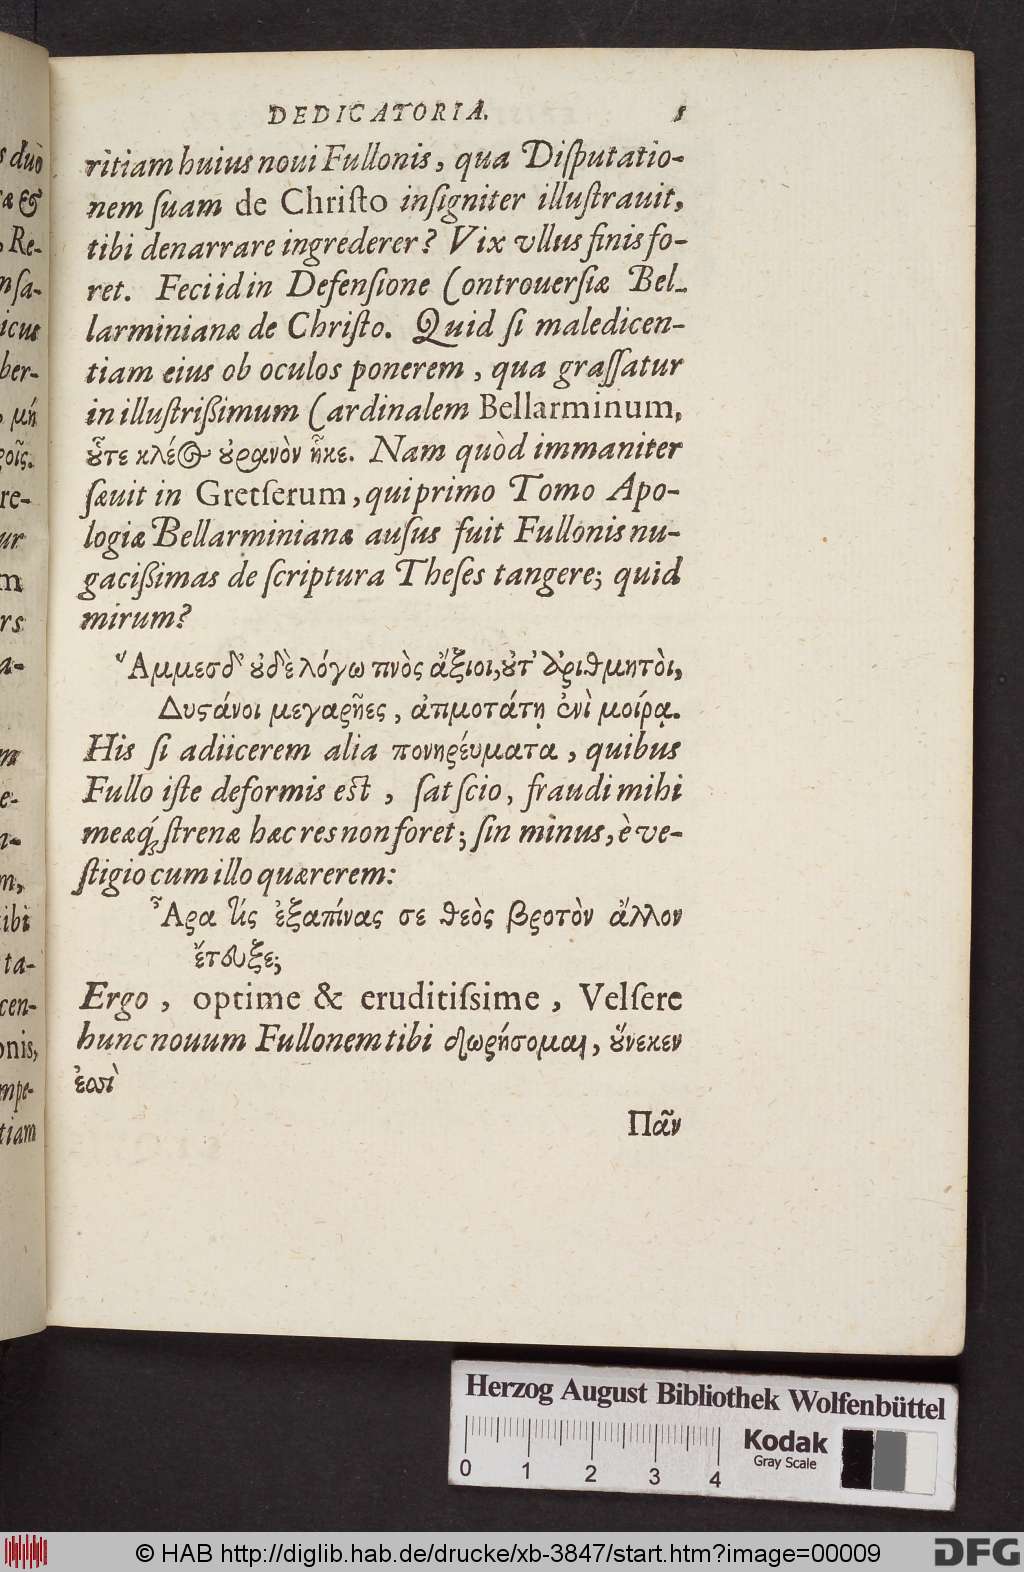 DEDICATORIA. 5
ritiam huius noui Fullonis, qua Diſputatio-
nem ſuam de Chriſto inſigniter illuſtrauit,
tibi denarrare ingrederer? Vix vllus finis fo-
ret. Feci id in Defenſione Controuerſiæ Bel-
larminianæ de Chriſto. Quid ſi maledicen-
tiam eius ob oculos ponerem, qua graſſatur
in illuſtrißimum Cardinalem Bellarminum,
οὗτε κλέος οὐρανὸν ἧκε. Nam quòd immaniter
ſæuit in Gretſerum, qui primo Tomo Apo-
logiæ Bellarminianæ auſus fuit Fullonis nu-
gacißimas de ſcriptura Theſes tangere; quid
mirum?
Ἄμμεσδ' οὐδὲ λόγω τινὸς ἄξιοι, οὐτ' ἀριθμητὸι,
Δυστάνοι μεγαρῆες, ἀτιμοτάτῃ ἐνὶ μοίρᾳ.
His ſi adiicerem alia πονηρεύματα, quibus
Fullo iſte deformis eſt, ſat ſcio, fraudi mihi
meæq́; ſtrenæ hæc res non foret; ſin minus, è ve-
ſtigio cum illo quærerem:
Ἆρα τίς ἐξαπίνας σε θεὸς βροτὸν ἄλλον
ἔτευξε;
Ergo, optime & eruditiſsime, Velſere
hunc nouum Fullonem tibi δωρήσομαι, οὕνεκεν
ἐστὶ
Πᾶν
s duò
æ &
, Re-
nſa-
icus
ber-
, μή
ροῖς.
re-
ur
m
rs
a-
m
e-
n-
m,
ibi
ta-
cen-
onis,
mpe-
tiam
Herzog August Bibliothek Wolfenbüttel
Kodak
Gray Scale
0 1 2 3 4
© HAB http://diglib.hab.de/drucke/xb-3847/start.htm?image=00009
DFG